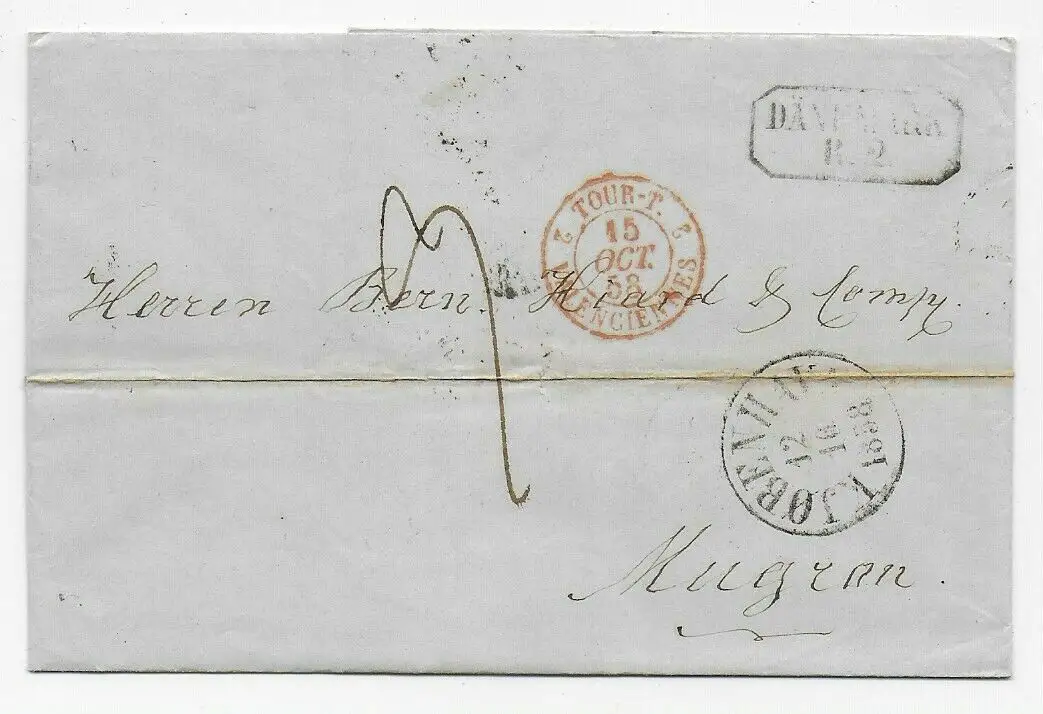 DÄNEMARK
R. 2.
2 TOUR-T. 2
15
OCT.
58
VALENCIENNES
Herren Bern. Hiard & Compy.
KJØBENHAVN
12
10
1858
Mugron.